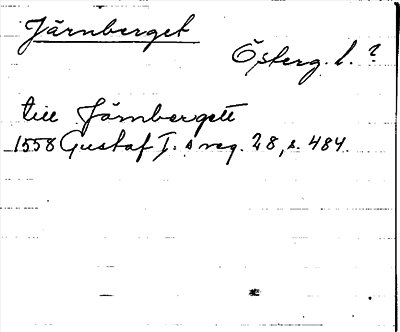 Järnberget
Österg. l. ?
till Järnbergett
1558 Gustaf I. s reg. 28, s. 484.